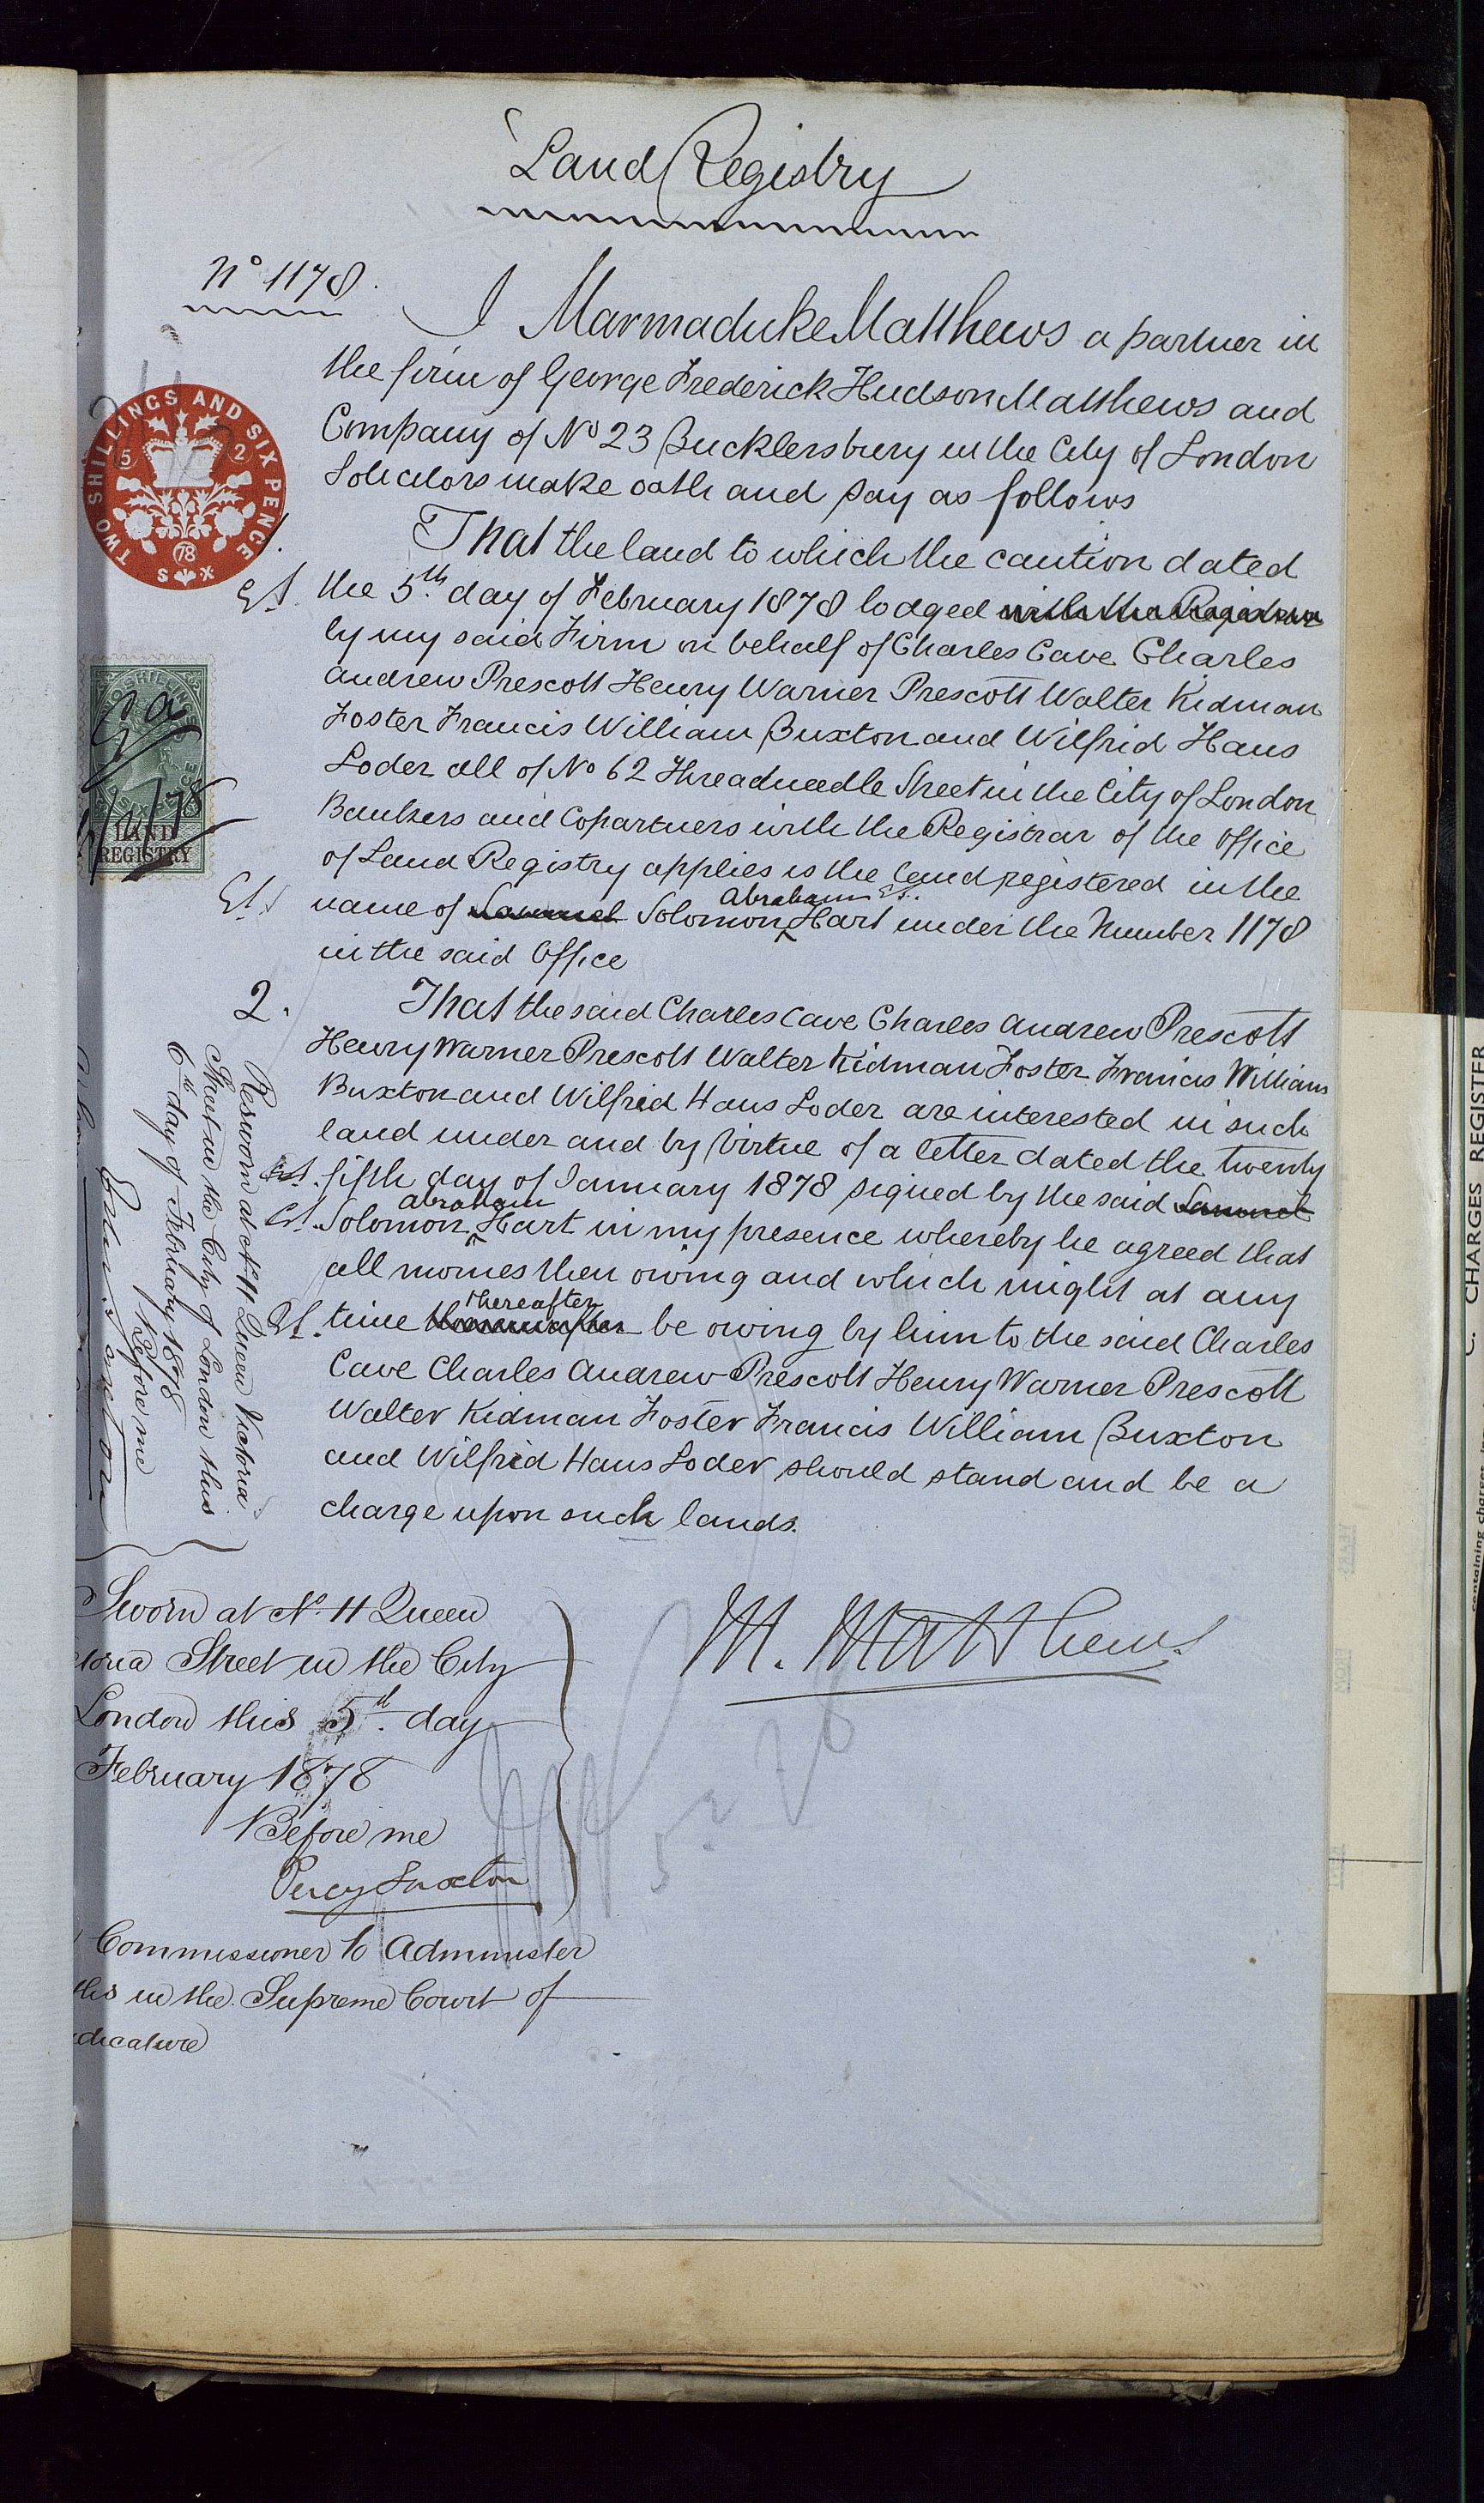 Land Registry
No 1178.
I Marmaduke Matthews a partner in
the firm of George Frederick Hudson Matthews and
Company of No 23 Bucklersbury in the City of London
Solicitors make oath and say as follows
TWO SHILLINGS AND SIX PENCE
5 2
78
1. That the land to which the caution dated
the 5th day of February 1878 lodged with the Registrar
by my said Firm on behalf of Charles Cave Charles
Andrew Prescott Henry Warner Prescott Walter Kidman
Foster Francis William Buxton and Wilfrid Hans
Loder all of No 62 Threadneedle Street in the City of London
Bankers and Copartners with the Registrar of the Office
of Land Registry applies is the land registered in the
name of Samuel Solomon Abraham Hart under the Number 1178
in the said Office
LAND
REGISTRY
2. That the said Charles Cave Charles Andrew Prescott
Henry Warner Prescott Walter Kidman Foster Francis William
Buxton and Wilfrid Hans Loder are interested in such
land under and by Virtue of a letter dated the twenty
fifth day of January 1878 signed by the said Samuel
Solomon Abraham Hart in my presence whereby he agreed that
all monies then owing and which might at any
time thereafter be owing by him to the said Charles
Cave Charles Andrew Prescott Henry Warner Prescott
Walter Kidman Foster Francis William Buxton
and Wilfrid Hans Loder should stand and be a
charge upon such lands.
Resworn at No 11 Queen Victoria
Street in the City of London this
6th day of February 1878
Before me
Sworn at No. 11 Queen
toria Street in the City
London this 5th. day
February 1878
Before me
M. Matthews
Commissioner to Administer
ths in the Supreme Court of
dicature
C. CHARGES REGISTER